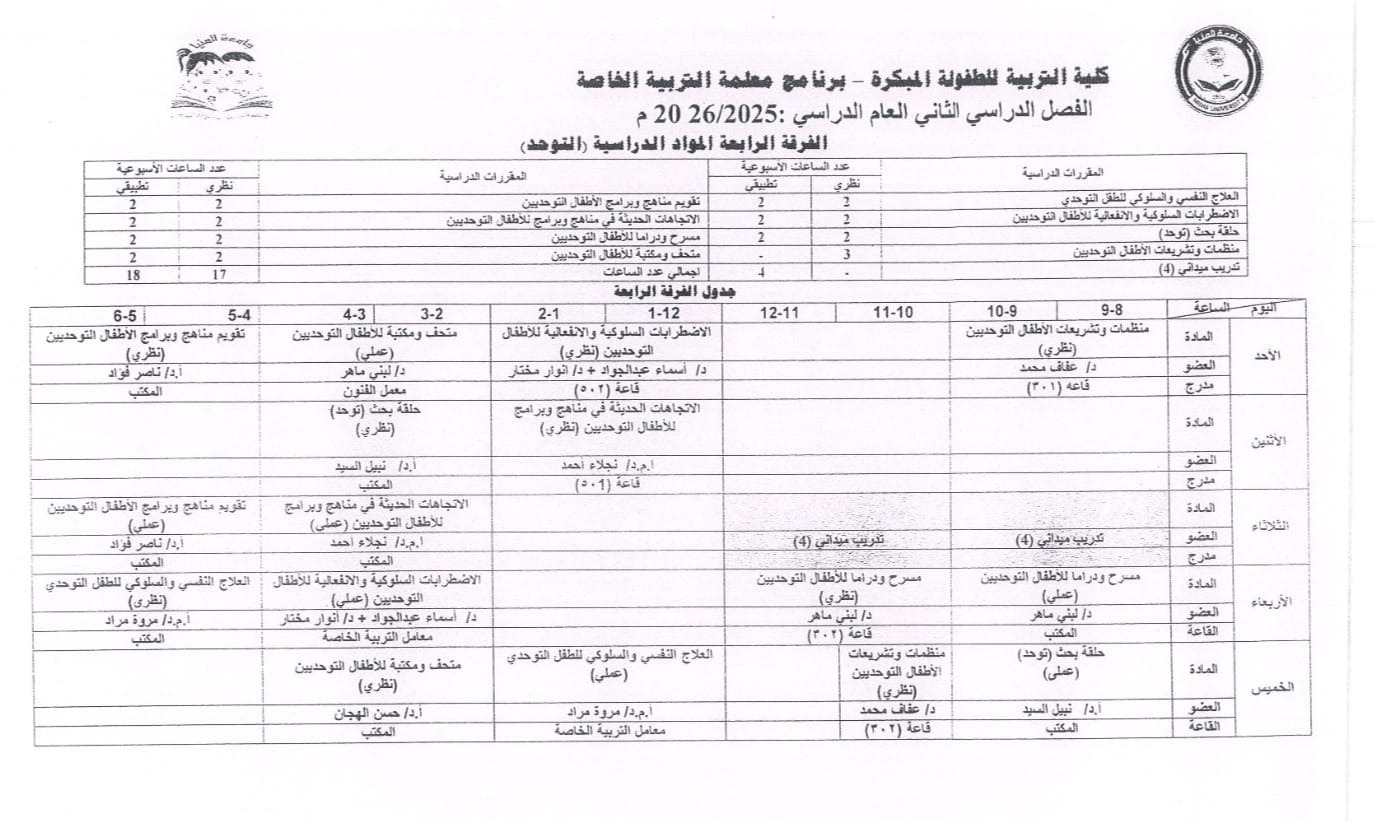 جامعة المنيا
جامعة المنيا
MINIA UNIVERSITY
كلية التربية للطفولة المبكرة – برنامج معلمة التربية الخاصة
الفصل الدراسي الثاني العام الدراسي :2025/26 20 م
الفرقة الرابعة المواد الدراسية (التوحد)
المقررات الدراسية عدد الساعات الأسبوعية المقررات الدراسية عدد الساعات الأسبوعية
نظري تطبيقي نظري تطبيقي
العلاج النفسي والسلوكي للطفل التوحدي 2 2 تقويم مناهج وبرامج الأطفال التوحديين 2 2
الاضطرابات السلوكية والانفعالية للأطفال التوحديين 2 2 الاتجاهات الحديثة في مناهج وبرامج للأطفال التوحديين 2 2
حلقة بحث (توحد) 2 2 مسرح ودراما للأطفال التوحديين 2 2
منظمات وتشريعات الأطفال التوحديين 3 - متحف ومكتبة للأطفال التوحديين 2 2
تدريب ميداني (4) - 4 اجمالي عدد الساعات 17 18
جدول الفرقة الرابعة
اليوم الساعة 9-8 10-9 11-10 12-11 1-12 2-1 3-2 4-3 5-4 6-5
الأحد
المادة منظمات وتشريعات الأطفال التوحديين الاضطرابات السلوكية والانفعالية للأطفال متحف ومكتبة للأطفال التوحديين تقويم مناهج وبرامج الأطفال التوحديين
(نظري) التوحديين (نظري) (عملي) (نظري)
العضو د/ عفاف محمد د/ أسماء عبدالجواد + د/ انوار مختار د/ لبني ماهر أ.د/ ناصر فؤاد
مدرج قاعه (٣٠١) قاعة (٥٠٢) معمل الفنون المكتب
الأثنين
المادة الاتجاهات الحديثة في مناهج وبرامج حلقة بحث (توحد)
للأطفال التوحديين (نظري) (نظري)
العضو ا.م.د/ نجلاء أحمد أ.د/ نبيل السيد
مدرج قاعة (٥٠1) المكتب
الثلاثاء
المادة الاتجاهات الحديثة في مناهج وبرامج تقويم مناهج وبرامج الأطفال التوحديين
للأطفال التوحديين (عملي) (عملي)
العضو تدريب ميداني (4) تدريب ميداني (4) ا.م.د/ نجلاء أحمد أ.د/ ناصر فؤاد
مدرج المكتب المكتب
الأربعاء
المادة مسرح ودراما للأطفال التوحديين مسرح ودراما للأطفال التوحديين الاضطرابات السلوكية والانفعالية للأطفال العلاج النفسي والسلوكي للطفل التوحدي
(عملي) (نظري) التوحديين (عملي) (نظرى)
العضو د/ لبني ماهر د/ لبني ماهر د/ أسماء عبدالجواد + د/ أنوار مختار أ.م.د/ مروة مراد
القاعة المكتب قاعة (٣٠٢) معامل التربية الخاصة المكتب
الخميس
المادة حلقة بحث (توحد) منظمات وتشريعات العلاج النفسي والسلوكي للطفل التوحدي متحف ومكتبة للأطفال التوحديين
(عملى) الأطفال التوحديين (عملي) (نظري)
(نظري)
العضو أ.د/ نبيل السيد د/ عفاف محمد ا.م.د/ مروة مراد أ.د/ حسن الهجان
القاعة المكتب قاعة (٣٠٢) معامل التربية الخاصة المكتب